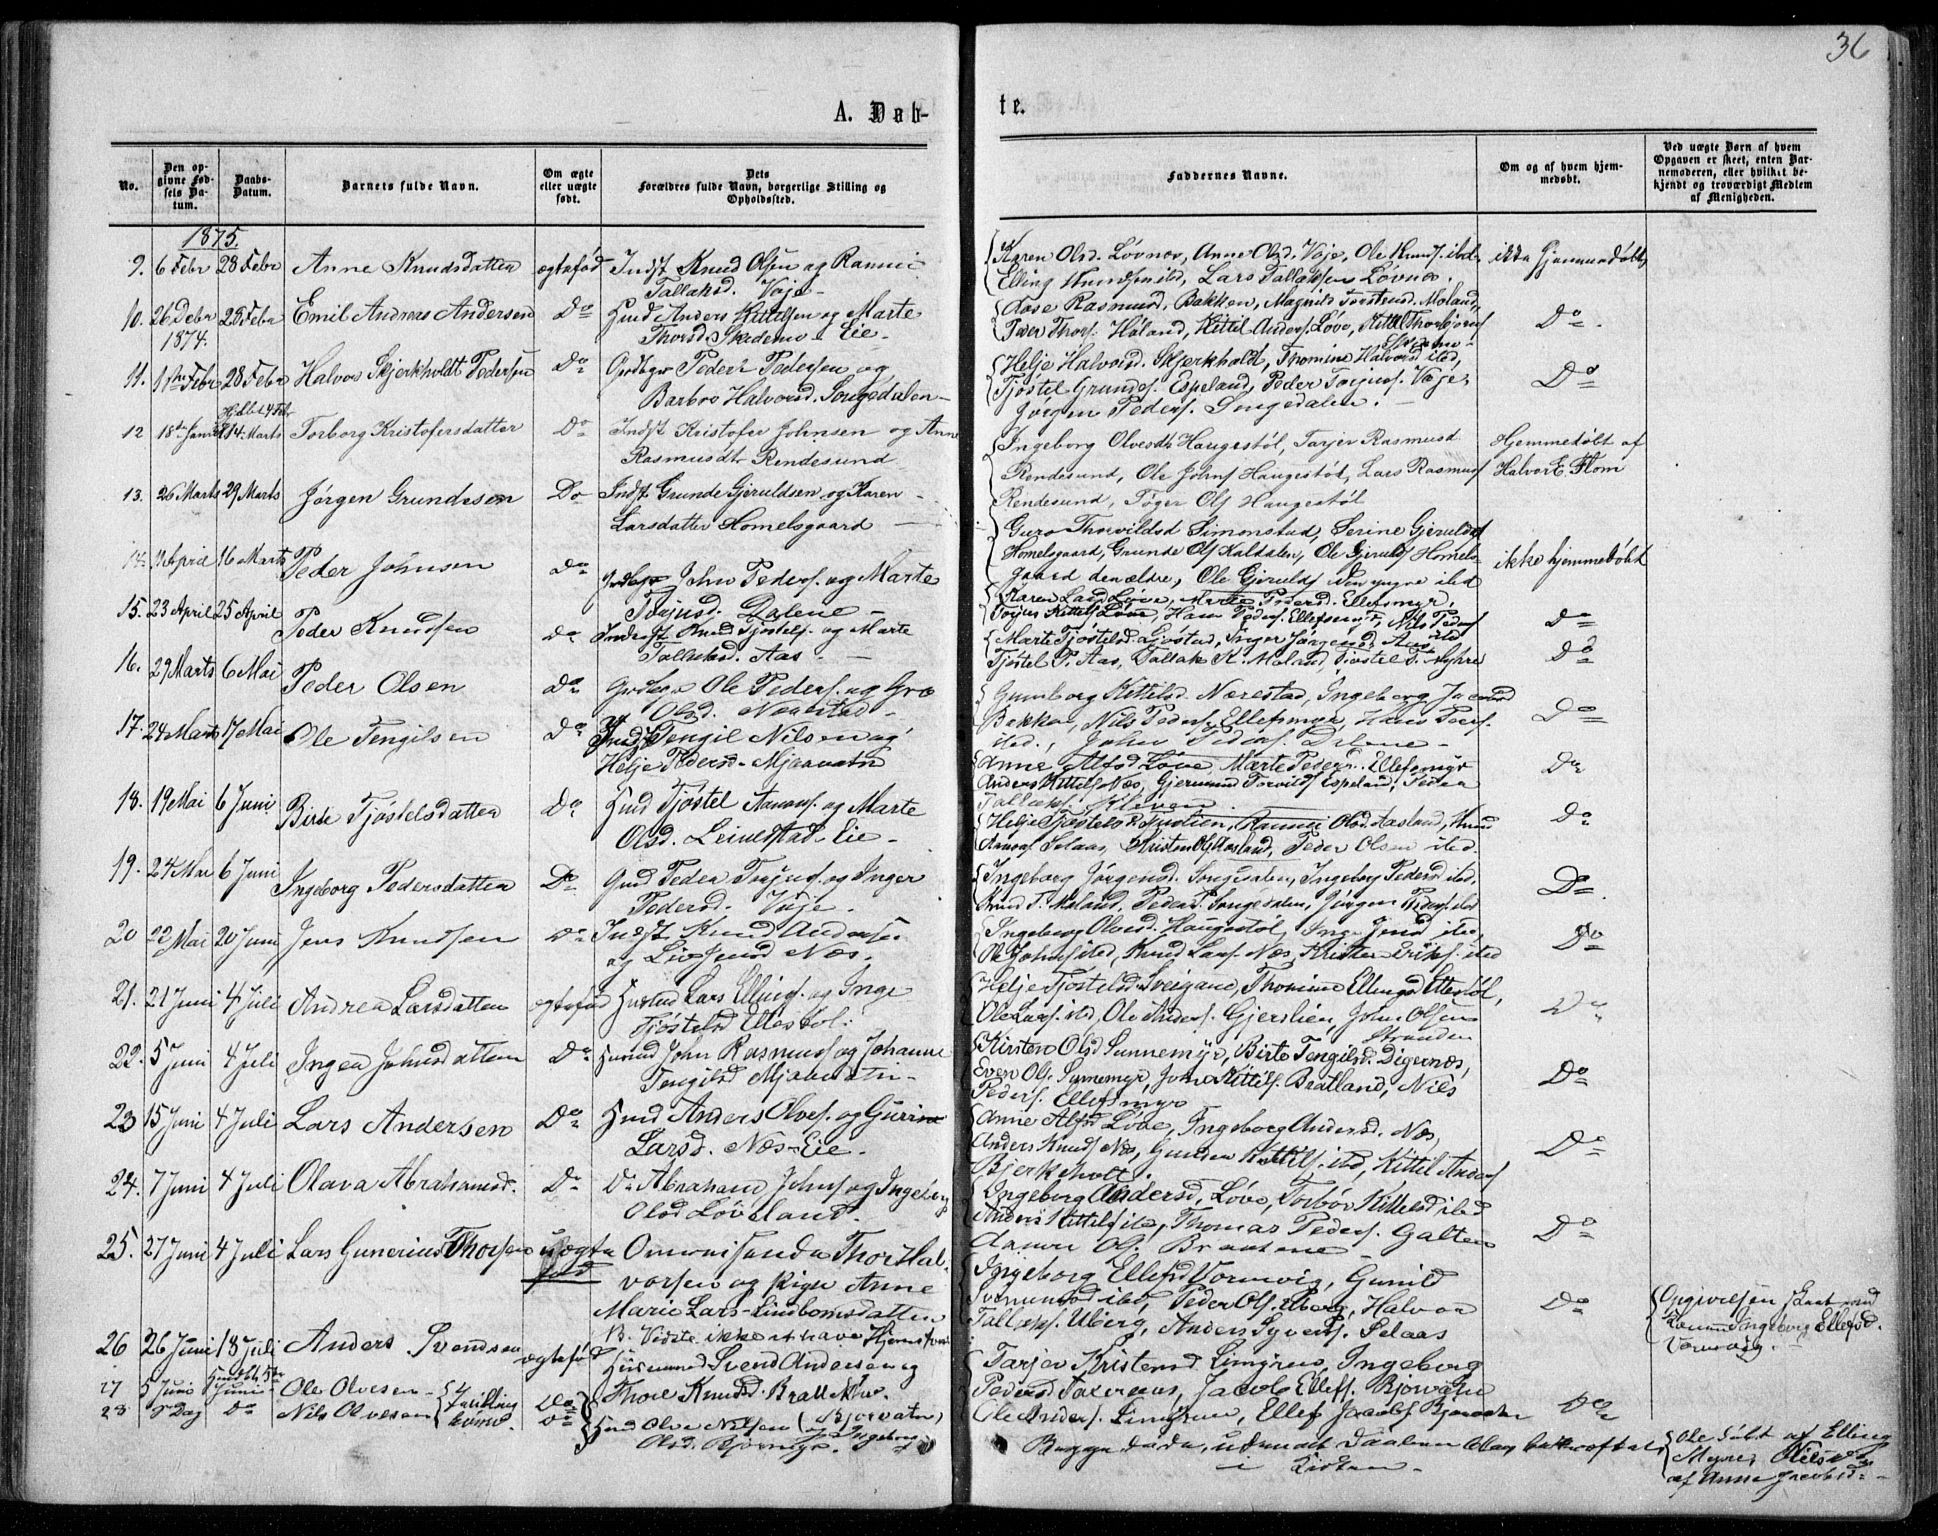 36
A. Døb-
te.
No.
Den op-
givne Fød-
sels Da-
tum.
Daabs-
Datum.
Barnets fulde Navn.
Om ægte
eller uægte
født.
Dets
Forældres fulde Navn, borgerlige Stilling og
Opholdssted.
Faddernes Navne.
Om og af hvem hjem-
medøbt.
Ved uægte Børn af hvem
Opgaven er skeet, enten Bar-
nemoderen, eller hvilket be-
kjendt og troværdigt Medlem
af Menigheden.
1875.
9. 6 Febr 28 Febr Anne Knudsdatter ægtefød Indst Knud Olsen og Ranni
Tallaksd. Vaje
Karen Olsd. Løvnes, Anne Olsd. Vaje, Ole Knuds. ibd.
Elling Knudsen ibd, Lars Tallaksen Løvnes. ikke hjemmedøbt
10. 26 Debr 28 Febr Emil Andreas Andersen Do Husd Anders Kittilsen og Marte
1874. Thorsd. Skedemo Eie
Aase Rasmusd. Bakken, Magnild Torstend. Moland,
Iver Thors. Høland, Kittil Anders. Løve, Kittil Thorbjørns Do
11. 1ste Febr 28 Febr Halvor Skjerkholdt Pedersen Do Grdbgr Peder Pedersen og
Barbro Halvorsd. Songedalen
Helje Halvorsd. Skjerkholdt, Thomine Halvorsd ibd,
Tjøstel Grundes. Espeland, Peder Torjus. Vaje,
Jørgen Peders. Songedalen. Do
12 18de Januar 14 Marts Torborg Kristofersdatter Do Indst Kristofer Johnsen og Anne
Rasmusdtr Rendesund
Ingeborg Olvesdtr Haugestøl, Tarjer Rasmusd
Rendesund, Ole Johns Haugestøl, Lars Rasmus
Rendesund, Tøger Ols Haugestøl Hjemmedøbt af
Halvor E. Flom
13. 26 Marts 29 Marts Jørgen Grundesen Do Indst Grunde Gjeruldsen og Karen
Larsdatter Homelsgaard
Guro Thorvildsd Simonstad, Serine Gjerulds
Homelsgaard, Grunde Ols Kaldalen, Ole Gjerulds Homels-
gaard den ældre, Ole Gjerulds den yngre ibd ikke hjemmedøbt
14. April 16 Marts Peder Johnsen Do Grdbgr John Peders. og Marte
Torjusd. Dalene
Karen Larsd Løve, Marte Pedersd. Ellefsmyr,
Torjus Kittels Løve, Hans Peders. Ellefsmyr, Nils Peders
ibd Do
15. 23 April 25 April Peder Knudsen Do Inderst Knud Tjøstels. og Marte
Tallaksd. Aas
Marte Tjøstelsd. Gjøstad, Inger Jørgensd. Aas,
Tjøstel P. Aas, Tallak K. Moland, Tjøstel T. Myhre Do
16. 29 Marts 6 Mai Peder Olsen Do Grdbgr Ole Peders. og Gro
Olsd. Nærestad
Gunborg Kittilsd. Nærestad, Ingeborg Jacobsd
Bakken, Nils Peders. Ellefsmyr, Hans Peders.
ibd., John Peders. Dalene Do
17. 24 Marts 17 Mai Ole Tengilsen Do Indst Tengil Nilsen og
Helje Pedersd. Mjaavatn
Anne Alfsd Løve, Marte Peders. Ellefsmyr
Anders Kittels Næs, Gjermund Torvilds Espeland, Peder
Tallaks. Kleven Do
18. 19 Mai 6 Juni Birte Tjøstelsdatter Do Husd Tjøstel Aanons. og Marte
Olsd. Leivestad Eie
Helje Tjøstelsd Kvstien, Ranni Olsd. Aasland, Knud
Aanons Selaas, Kristen Ols Aasland, Peder Olsen ibd. Do
19. 24 Mai 6 Juni Ingeborg Pedersdatter Do Grd Peder Torjus. og Inger
Pedersd. Vaje
Ingeborg Jørgensd. Songedalen, Ingeborg Pedersd ibd,
Knud T. Moland, Peder P. Songedalen, Jørgen Peders. ibd Do
20 22 Mai 20 Juni Jens Knudsen Do Indst Knud Anders.
og Liv Jensd Næs.
Ingeborg Olvesd. Haugestøl, Inge Jensd ibd,
Ole Johns ibd, Knud Lars. Næs, Kristen Eriks. ibd Do
21. 21 Juni 4 Juli Andrea Larsdatter ægtefød Husmd Lars Ellings. og Inge
Tjøstelsd Ellestøl.
Helje Tjøstelsd Sveigand, Thomine Ellingsd Ettestøl,
Ole Lars. ibd, Ole Anders. Gjerslien, John Olsen
Stranden Do
22. 5 Juni 4 Juli Ingea Johnsdatter Do Husmd John Rasmus. og Johanne
Tengilsd Mjaavatn
Kirsten Olsd Sunnemyr, Birte Tengilsd. Digernæs,
Even Ols. Sunnemyr, John Kittils. Bratland, Nils
Peders. Ellefsmyr Do
23 15 Juni 4 Juli Lars Andersen Do Husd Anders Olves. og Gurine
Larsd. Næs Eie.
Anne Alfsd Løve, Ingeborg Andersd. Næs,
Anders Knuds Næs, Gunder Kittils. ibd, Kittil Anders
Bjerkeholt. Do
24. 7 Juni 4 Juli Olava Abrahamsd. Do Do Abraham Johns. og Ingeborg
Olsd Løveland.
Ingeborg Andersd, Løve, Torbør Kittelsd ibd
Anders Kittels ibd, Thomas Peders. Galten
Aanon Ols. Braatene Do
25. 27 Juni 4 Juli Lars Gunerius Thorsen uægte
fød Omreisende Thor Hal-
vorsen og Pigen Anne
Marie Lars-Lindbomsdatter
B. Vidste ikke at have Hjemsted
Ingeborg Ellefsd Vormvig, Gunild
ibd, Peder Ols. Uberg, Halvor
Tallaks. Uberg, Anders Syvers. Selaas Do
Opgivelsen skeet ved
Ingeborg Ellefsd.
Vormvig.
26 26 Juni 18 Juli Anders Svendsen ægtefød Husmand Svend Andersen og
Thore Knudsd. Bratt Næs.
Tarjer Kristensd. Limyren, Ingeborg
Pedersd , Jacob Ellefs. Bjorvatn
Ole Anders. Limyren, Ellef Jacobs Bjorvatn Do
27 5 Juni Juni Ole Olvesen Tvilling-
børn. Do
28 S. Dag Do Nils Olvesen Do Husd Olve Nilsen (Bjorvatn) og Ingeborg
Olsd.
Begge døde, uden at Daaben blev bekræftet
i Kirken
Ole døbt af Elling
Myre, Nils
af Anne Jacobsd.